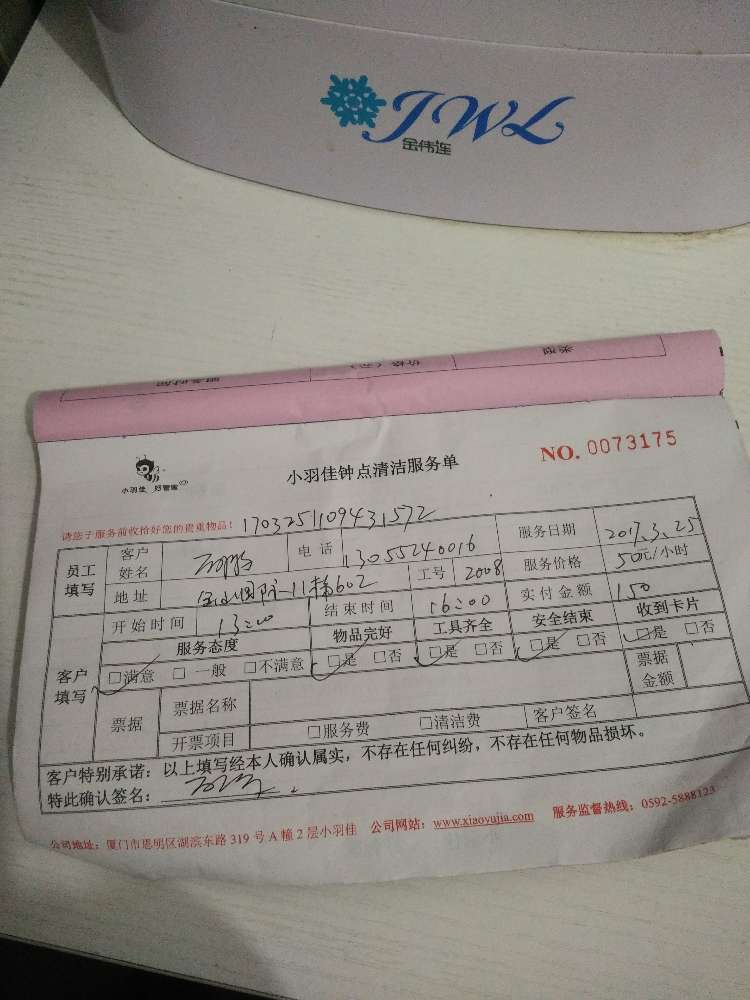 JWL
金伟连
小羽佳 好管家
小羽佳钟点清洁服务单
NO. 0073175
请您于服务前收拾好您的贵重物品! 1703251109431572
员工填写 客户姓名 电话 13055240016 服务日期 2017.3.25
地址 11梯602 工号 2008 服务价格 50元/小时
开始时间 13:00 结束时间 16:00 实付金额 150
客户填写 服务态度 物品完好 工具齐全 安全结束 收到卡片
□满意 □一般 □不满意 □是 □否 □是 □否 □是 □否 □是 □否
票据 票据名称 票据金额
开票项目 □服务费 □清洁费 客户签名
客户特别承诺:以上填写经本人确认属实,不存在任何纠纷,不存在任何物品损坏。
特此确认签名:
公司地址:厦门市思明区湖滨东路 319 号 A 幢 2 层小羽佳 公司网站:www.xiaoyujia.com 服务监督热线:0592-5888123